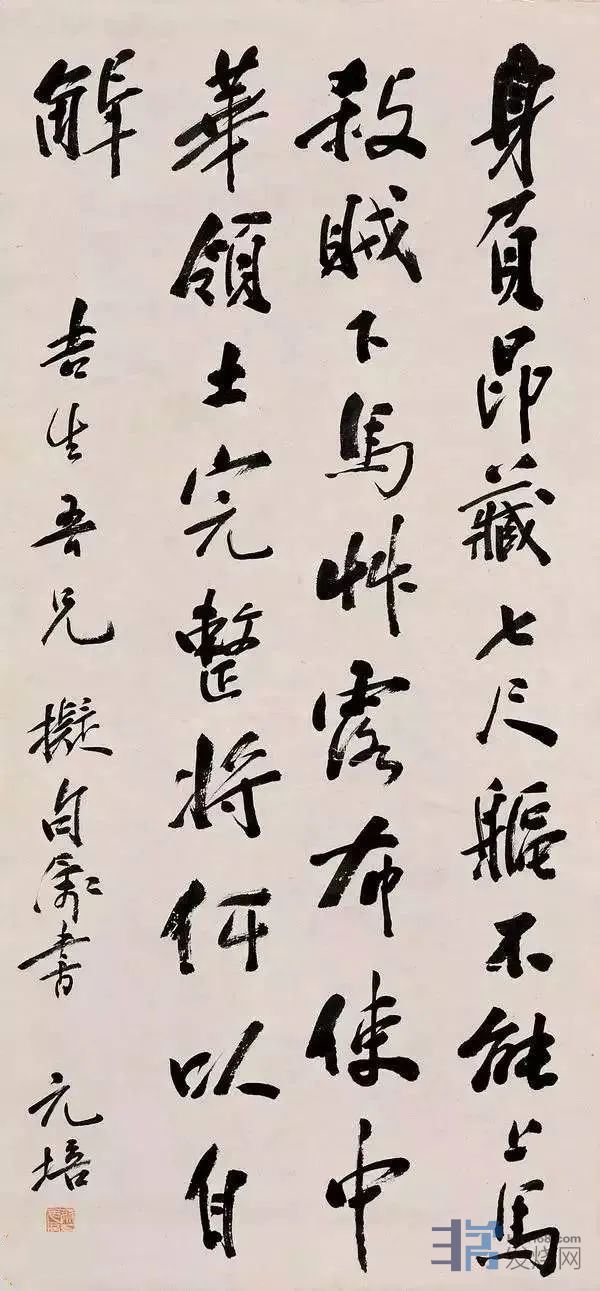 身負昂藏七尺軀不能上馬
殺賊下馬艸露布使中
華領土完整將何以自
解
吉生吾兄 擬句屬書 元培
发烧网